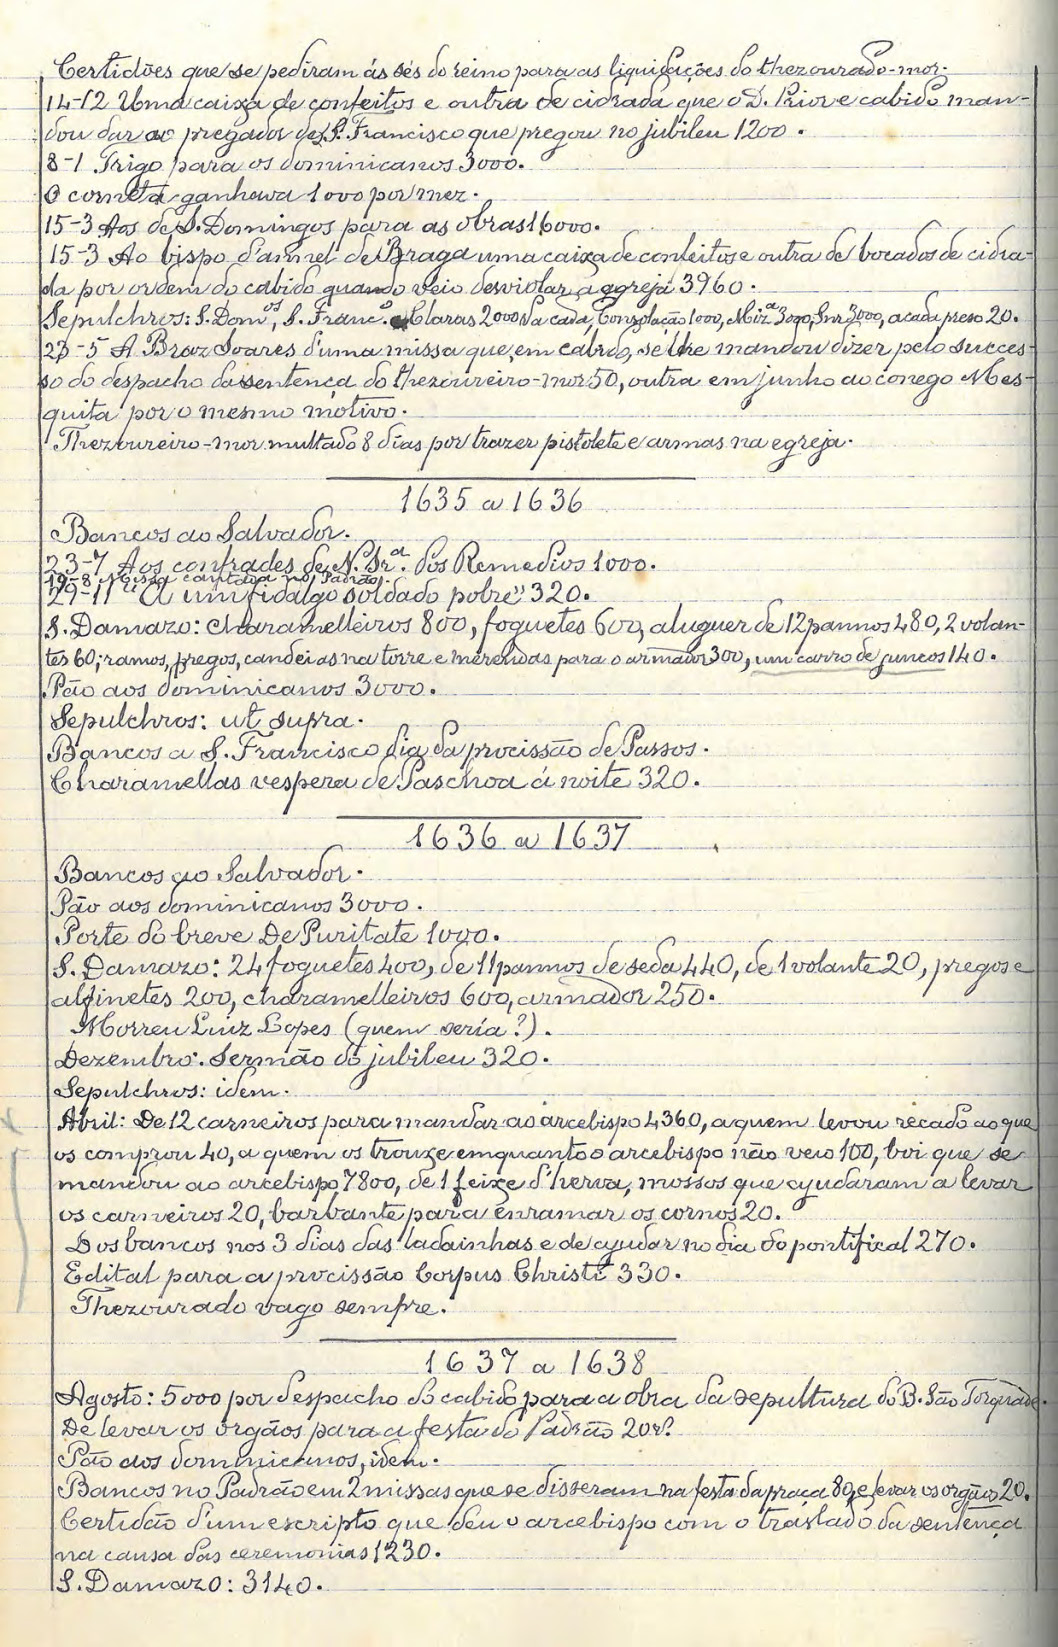 Certidões que se pediram ás sés do reino para as liquidações do thezourado-mor.
14-12 Uma caixa de confeitos e outra de cidrada que o D. Prior e cabido man-
dou dar ao pregador de S. Francisco que pregou no jubileu 1200.
8-1 Trigo para os dominicanos 3000.
O corneta ganhava 1000 por mez.
15-3 Aos de S. Domingos para as obras 16000.
15-3 Ao bispo d'annel de Braga uma caixa de confeitos e outra de bocados de cidra-
da por ordem do cabido quando veio desviolar a egreja 3960.
Sepulchros: S. Dom.os, S. Franc.o e Claras 2000 da cada, Consolação 1000, Miz.a 3000, Snr 3000, a cada preso 20.
23-5 A Braz Soares d'uma missa que, em cabido, se lhe mandou dizer pelo succes-
so do despacho da sentença do thezoureiro-mor 50, outra em junho ao conego Mes-
quita por o mesmo motivo.
Thezoureiro-mor multado 8 dias por trazer pistolete e armas na egreja.
1635 a 1636
Bancos ao Salvador.
23-7 Aos confrades de N. Sr.a dos Remedios 1000.
19-8 Missa cantada no Padrão.
29-11 "A um fidalgo soldado pobre" 320.
S. Damazo: charamelleiros 800, foguetes 600, aluguer de 12 pannos 480, 2 volan-
tes 60; ramos, pregos, candeias na torre e merendas para o armador 300, um carro de juncos 140.
Pão aos dominicanos 3000.
Sepulchros: ut supra.
Bancos a S. Francisco dia da procissão de Passos.
Charamellas vespera de Paschoa á noite 320.
1636 a 1637
Bancos ao Salvador.
Pão aos dominicanos 3000.
Porte do breve De Puritate 1000.
S. Damazo: 24 foguetes 400, de 11 pannos de seda 440, de 1 volante 20, pregos e
alfinetes 200, charamelleiros 600, armador 250.
Morreu Luiz Lopes (quem seria?).
Dezembro: Sermão do jubileu 320.
Sepulchros: idem.
Abril: De 12 carneiros para mandar ao arcebispo 4360, a quem levou recado ao que
os comprou 40, a quem os trouxe emquanto o arcebispo não veio 100, boi que se
mandou ao arcebispo 7800, de 1 feixe d'herva, mossos que ajudaram a levar
os carneiros 20, barbante para enramar os cornos 20.
Dos bancos nos 3 dias das ladainhas e de ajudar no dia do pontifical 270.
Edital para a procissão Corpus Christi 330.
Thezourado vago sempre.
1637 a 1638
Agosto: 5000 por despacho do cabido para a obra da sepultura do B. São Torquade.
De levar os orgãos para a festa do Padrão 20
Pão aos dominicanos, idem.
Bancos no Padrão em 2 missas que se disseram na festa da praça 80, e levar os orgãos 20.
Certidão d'um escripto que deu o arcebispo com o traslado da sentença
na causa das ceremonias 1230.
S. Damazo: 3140.